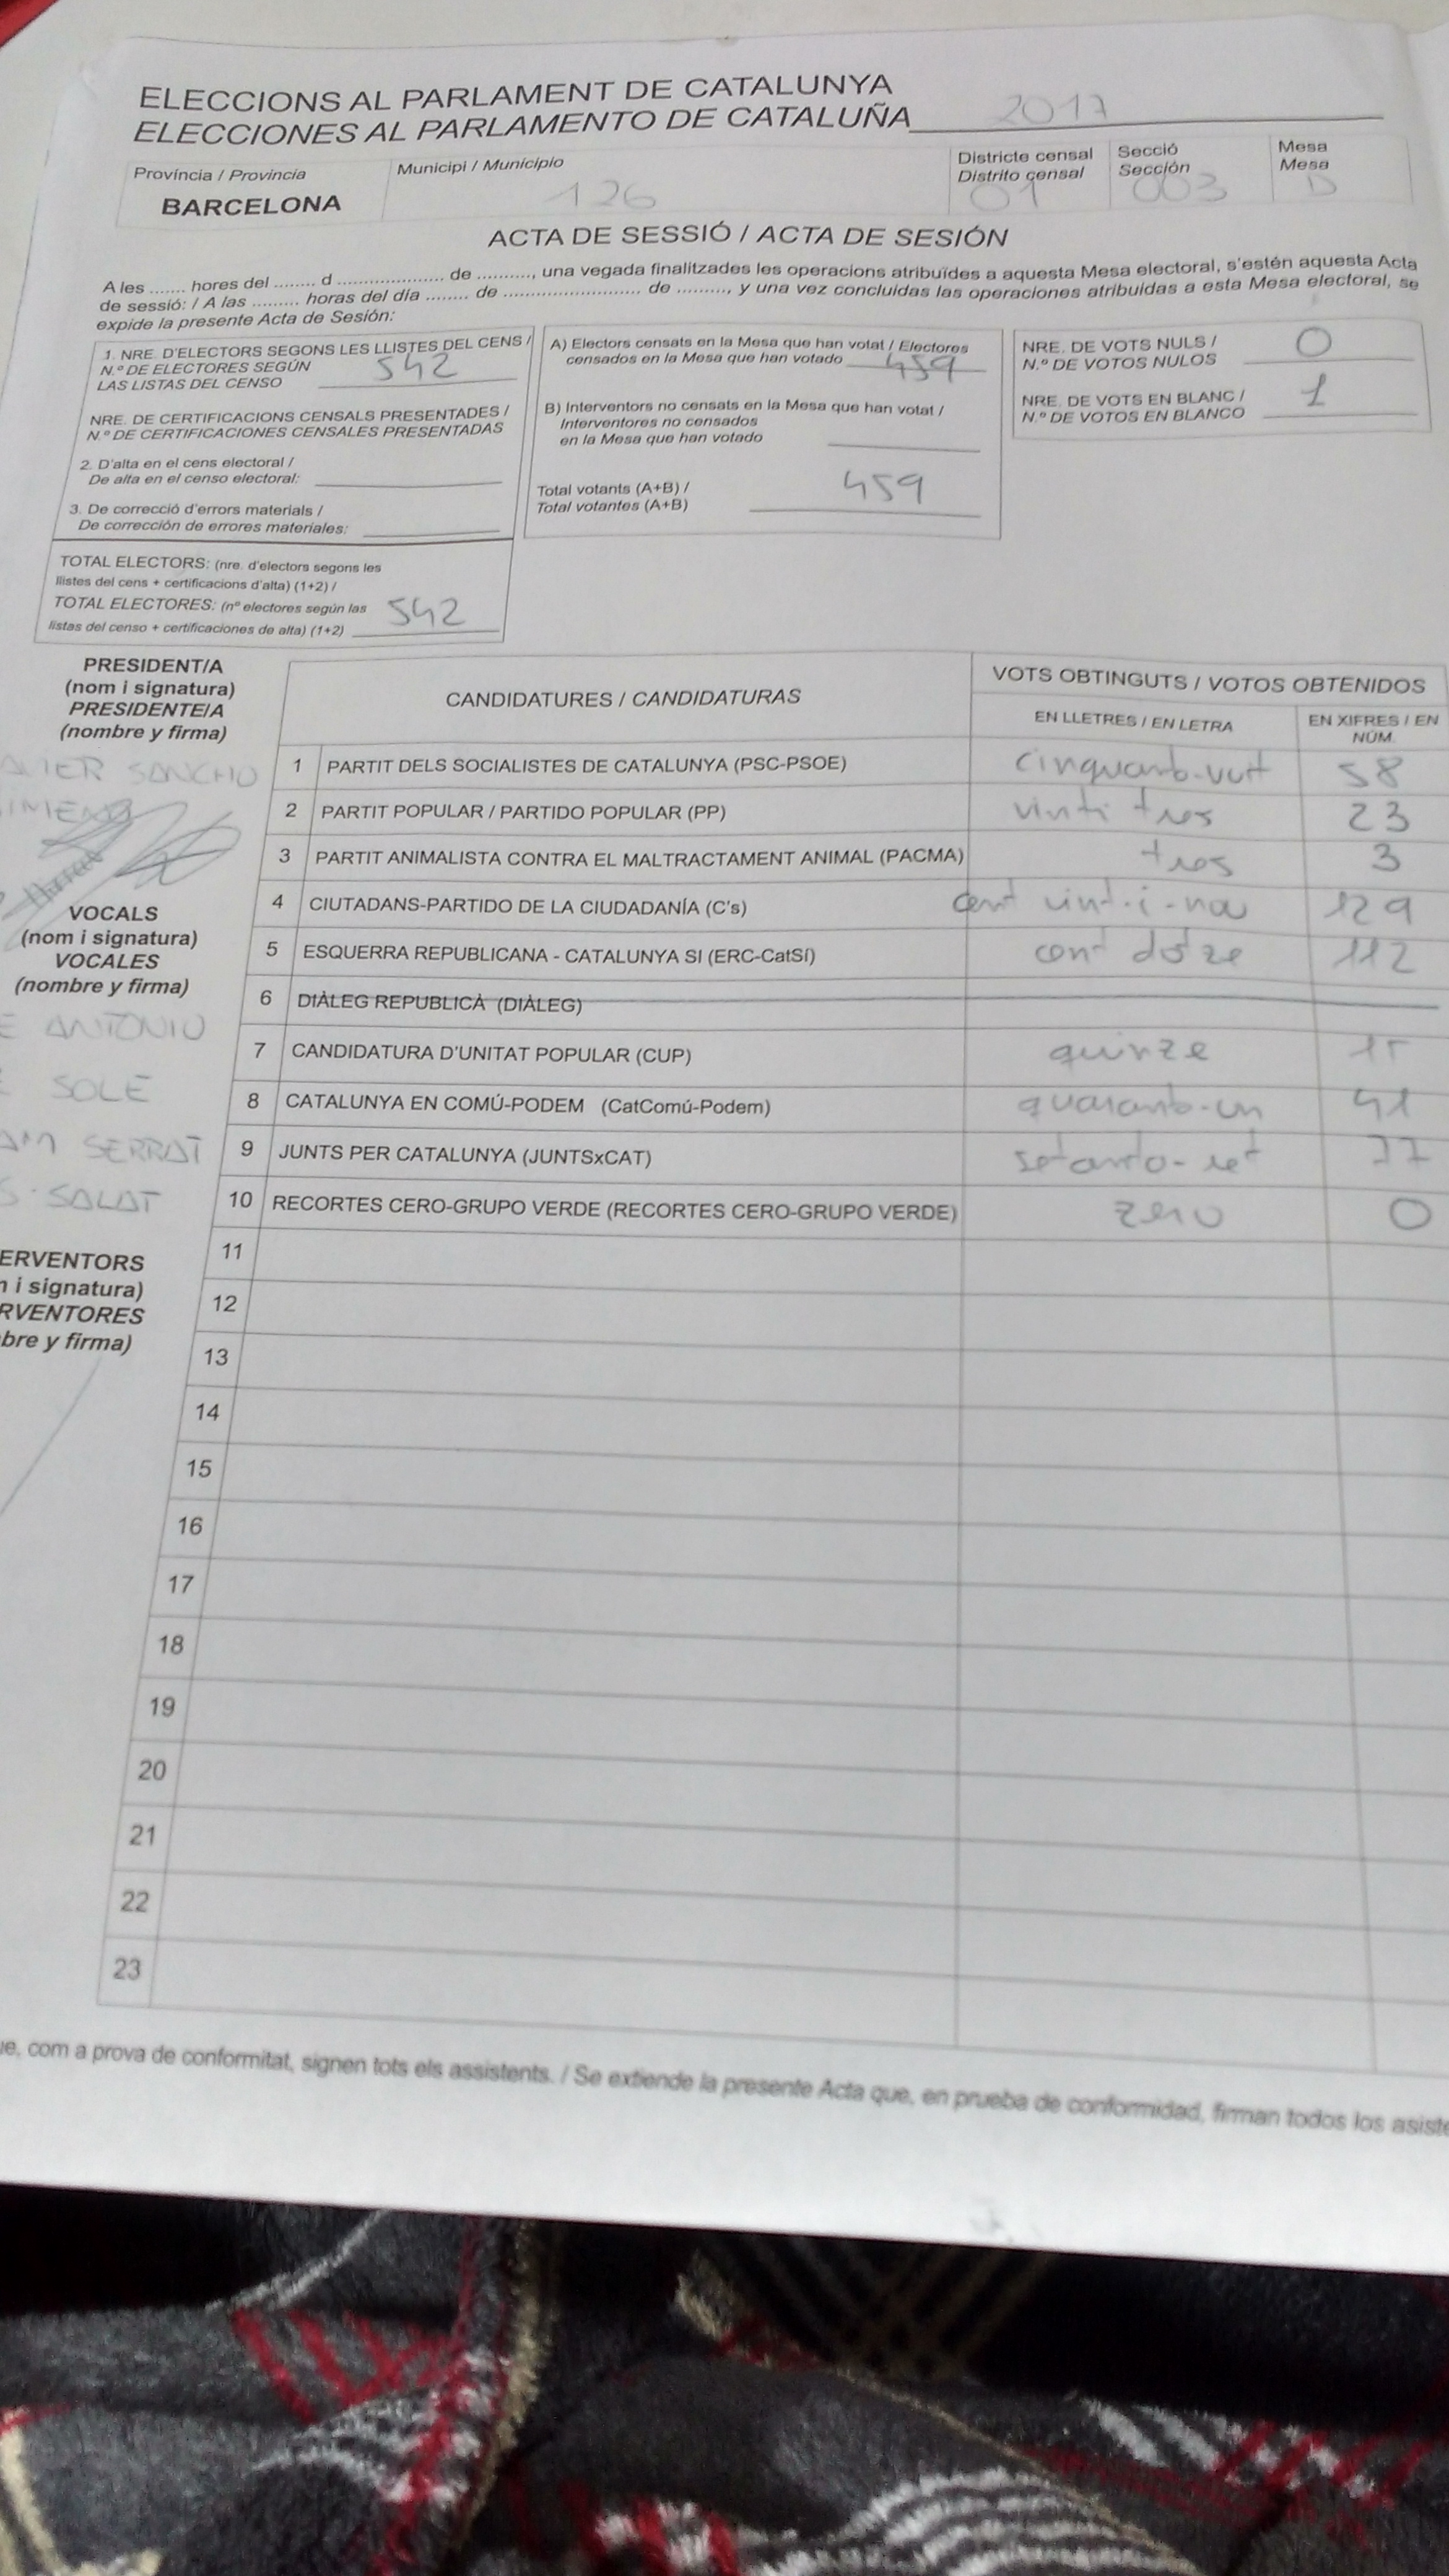 ELECCIONS AL PARLAMENT DE CATALUNYA
ELECCIONES AL PARLAMENTO DE CATALUÑA 2017
Província / Provincia
BARCELONA
Municipi / Municipio
126
Districte censal
Distrito censal
01
Secció
Sección
003
Mesa
Mesa
D
ACTA DE SESSIÓ / ACTA DE SESIÓN
A les ....... hores del ........ d ..................... de .........., una vegada finalitzades les operacions atribuïdes a aquesta Mesa electoral, s'estén aquesta Acta
de sessió: / A las ......... horas del día ........ de ........................... de ........., y una vez concluidas las operaciones atribuidas a esta Mesa electoral, se
expide la presente Acta de Sesión:
1. NRE. D'ELECTORS SEGONS LES LLISTES DEL CENS /
N.º DE ELECTORES SEGÚN
LAS LISTAS DEL CENSO 542
NRE. DE CERTIFICACIONS CENSALS PRESENTADES /
N.º DE CERTIFICACIONES CENSALES PRESENTADAS
2. D'alta en el cens electoral /
De alta en el censo electoral:
3. De correcció d'errors materials /
De corrección de errores materiales:
TOTAL ELECTORS: (nre. d'electors segons les
llistes del cens + certificacions d'alta) (1+2) /
TOTAL ELECTORES: (nº electores según las
listas del censo + certificaciones de alta) (1+2) 542
A) Electors censats en la Mesa que han votat / Electores
censados en la Mesa que han votado 459
B) Interventors no censats en la Mesa que han votat /
Interventores no censados
en la Mesa que han votado
Total votants (A+B) /
Total votantes (A+B) 459
NRE. DE VOTS NULS /
N.º DE VOTOS NULOS 0
NRE. DE VOTS EN BLANC /
N.º DE VOTOS EN BLANCO 1
PRESIDENT/A
(nom i signatura)
PRESIDENTE/A
(nombre y firma)
SANCHO
VOCALS
(nom i signatura)
VOCALES
(nombre y firma)
ANTONIO
SOLE
SERRAT
SALAT
ERVENTORS
i signatura)
RVENTORES
bre y firma)
CANDIDATURES / CANDIDATURAS
VOTS OBTINGUTS / VOTOS OBTENIDOS
EN LLETRES / EN LETRA
EN XIFRES / EN
NÚM.
1 PARTIT DELS SOCIALISTES DE CATALUNYA (PSC-PSOE) cinquanta-vuit 58
2 PARTIT POPULAR / PARTIDO POPULAR (PP) vinti tres 23
3 PARTIT ANIMALISTA CONTRA EL MALTRACTAMENT ANIMAL (PACMA) tres 3
4 CIUTADANS-PARTIDO DE LA CIUDADANÍA (C's) cent vint-i-nou 129
5 ESQUERRA REPUBLICANA - CATALUNYA SI (ERC-CatSí) cent dotze 112
6 DIÀLEG REPUBLICÀ (DIÀLEG)
7 CANDIDATURA D'UNITAT POPULAR (CUP) quinze 15
8 CATALUNYA EN COMÚ-PODEM (CatComú-Podem) quaranta-un 41
9 JUNTS PER CATALUNYA (JUNTSxCAT) setanta-set 77
10 RECORTES CERO-GRUPO VERDE (RECORTES CERO-GRUPO VERDE) zero 0
11
12
13
14
15
16
17
18
19
20
21
22
23
ue, com a prova de conformitat, signen tots els assistents. / Se extiende la presente Acta que, en prueba de conformidad, firman todos los asiste